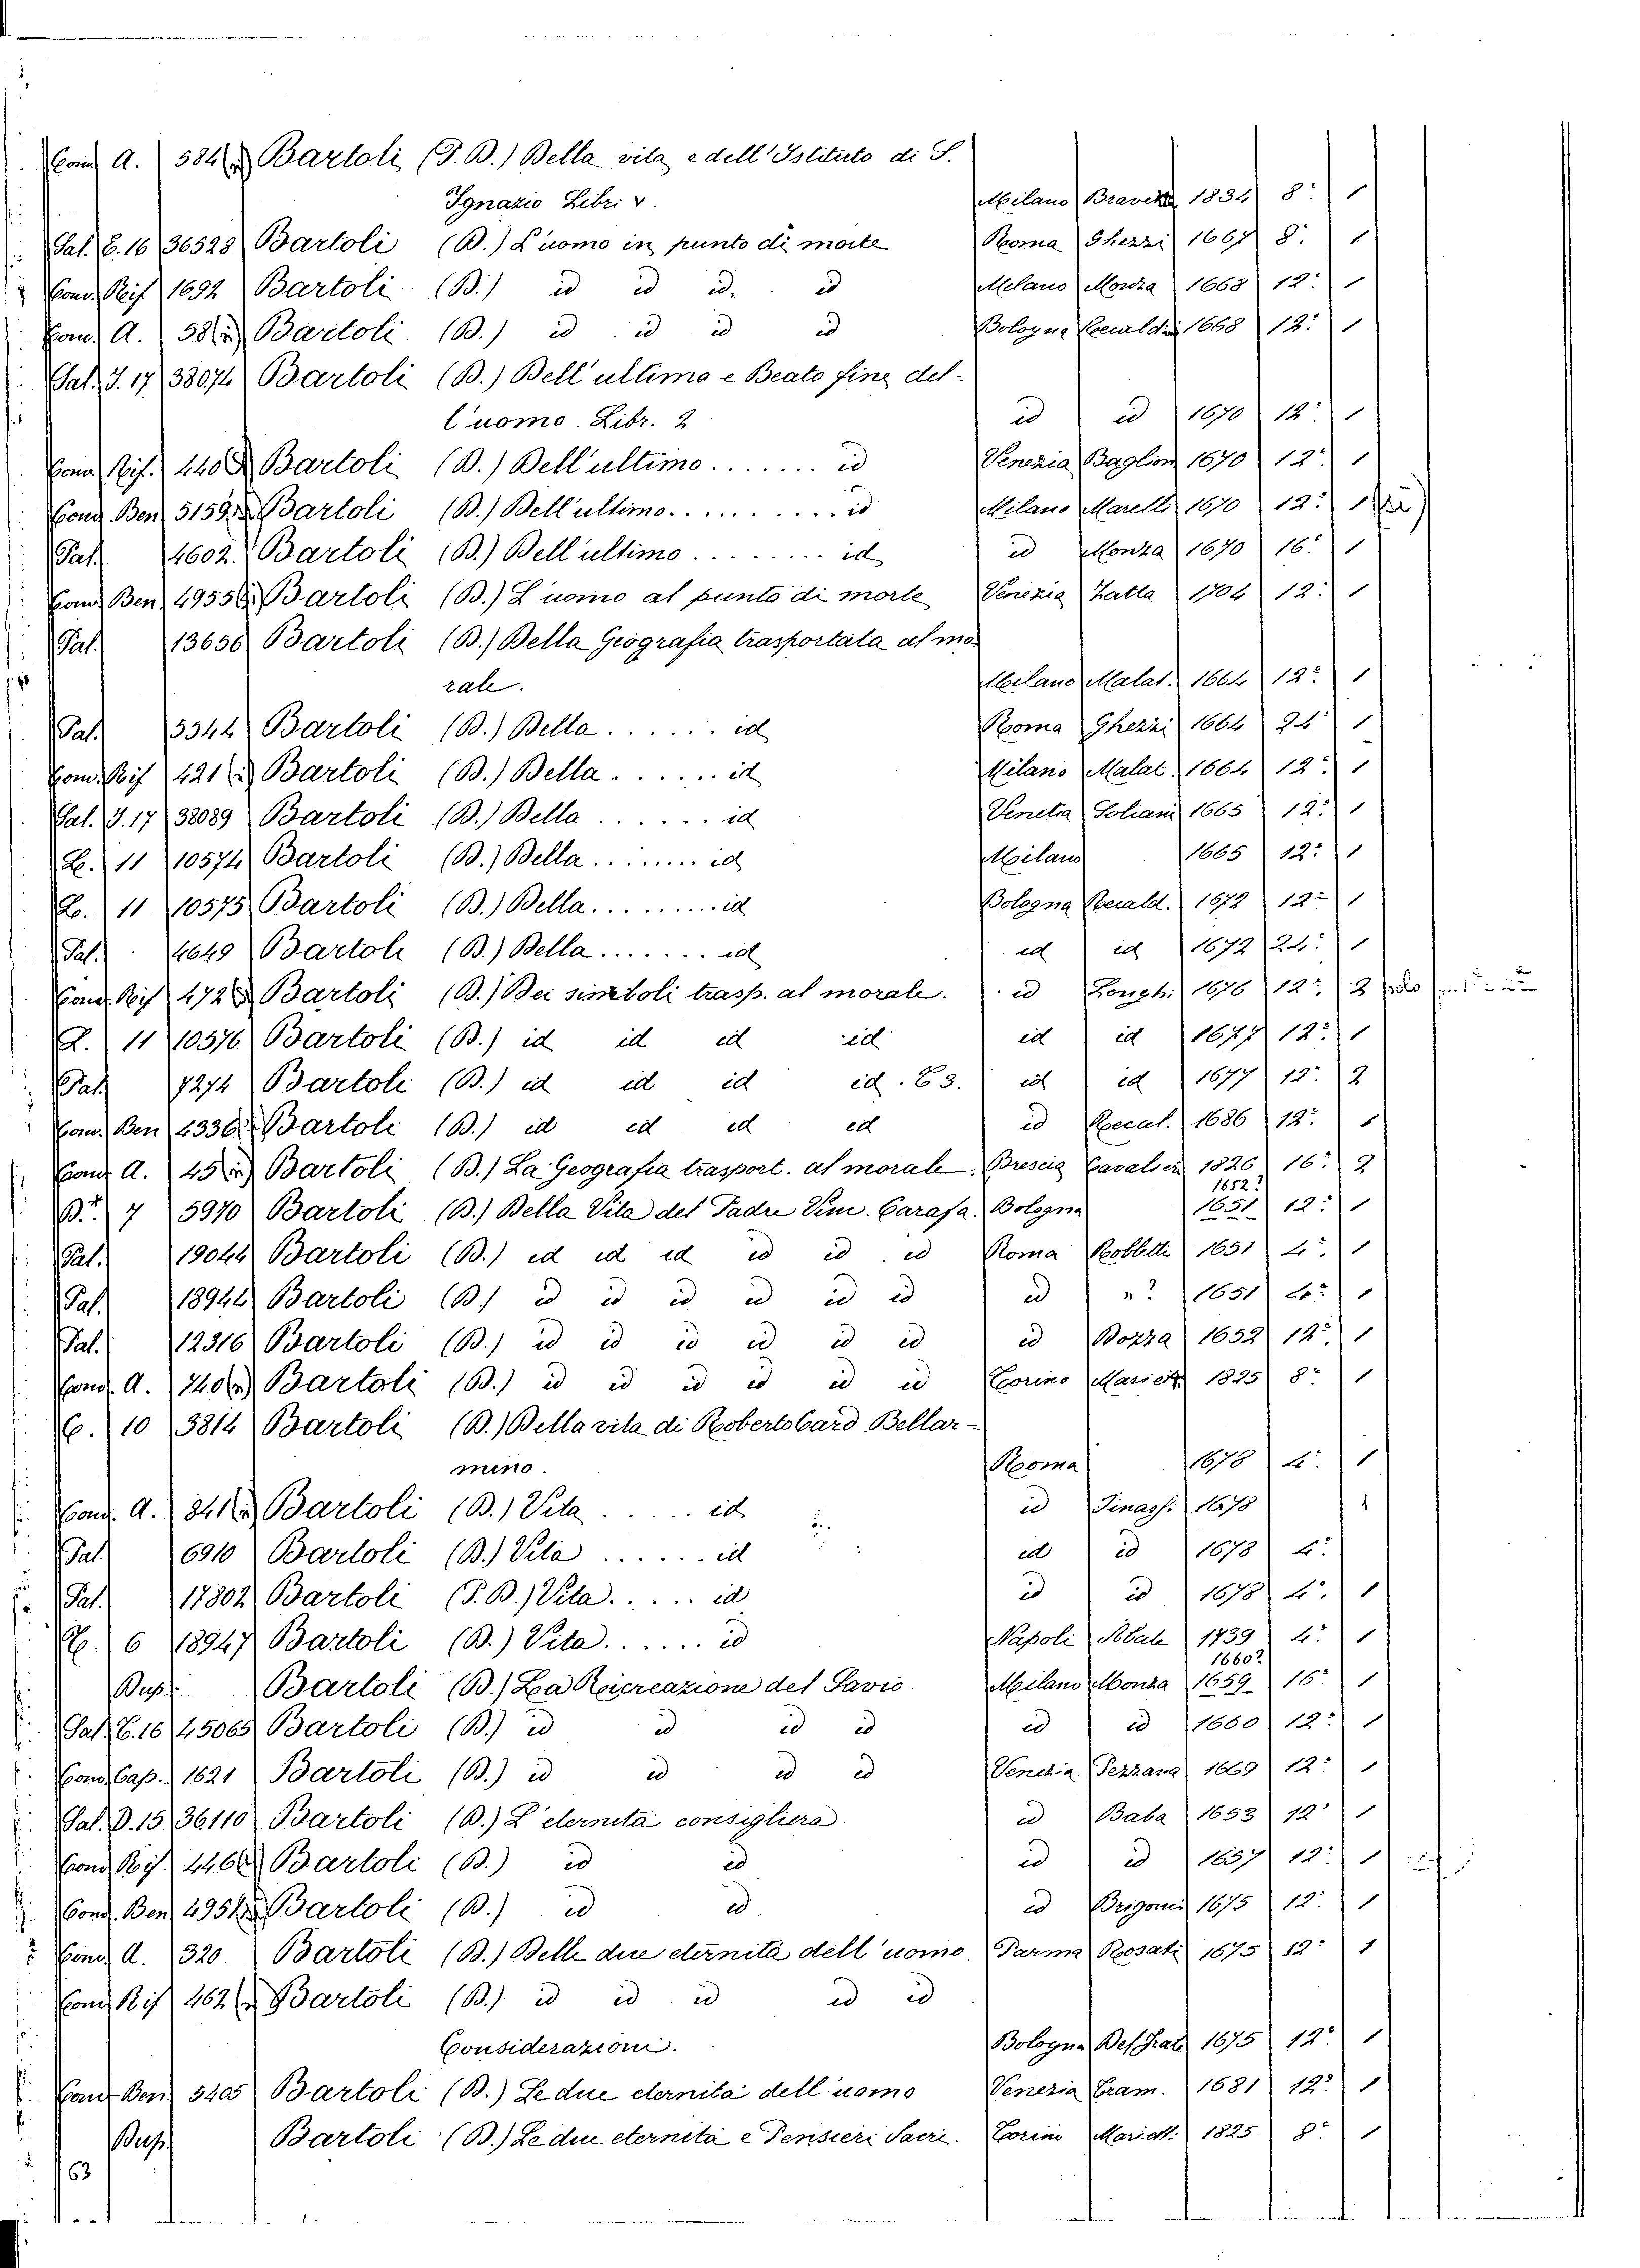 Com A. 584 Bartoli (P. B.) Della vita e dell'Istituto di S.
Ignazio Libri V. Milano 1834 8° 1
Sal. E. 16 36528 Bartoli (B.) L'uomo in punto di morte Roma Ghezzi 1667 8° 1
Com. Rif 1692 Bartoli (B.) id id id. id Melano Monza 1668 12° 1
Com. A. 58 Bartoli (B.) id id id id Bologna 1668 12° 1
Sal. J. 17 38074 Bartoli (B.) Dell'ultimo e Beato fine del-
l'uomo. Libr. 2 id id 1670 12° 1
Com Rif. 440 Bartoli (B.) Dell'ultimo....... id Venezia Baglion 1670 12° 1
Com Ben 5159 Bartoli (B.) Dell'ultimo.......... id Milano Marelli 1670 12° 1
Pal. 4602 Bartoli (B.) Dell'ultimo........ id id Monza 1670 16° 1
Com Ben 4955 Bartoli (B.) L'uomo al punto di morte Venezia Zatta 1704 12° 1
Pal. 13656 Bartoli (B.) Della Geografia trasportata al mo-
rale. Milano Malat. 1664 12° 1
Pal. 5344 Bartoli (B.) Della...... id Roma Ghezzi 1664 24° 1
Com. Rif 421 Bartoli (B.) Della...... id Milano Malat. 1664 12° 1
Sal. J. 17 38089 Bartoli (B.) Della...... id Venetia Toliani 1665 12° 1
L. 11 10574 Bartoli (B.) Della....... id Milano 1665 12° 1
L. 11 10575 Bartoli (B.) Della......... id Bologna Recald. 1672 12° 1
Pal. 4649 Bartoli (B.) Della....... id id id 1672 24° 1
Com. Rif 472 Bartoli (B.) Dei simboli trasp. al morale. id Longh. 1676 12° 2
L. 11 10576 Bartoli (B.) id id id id id id 1677 12° 1
Pal. 7274 Bartoli (B.) id id id id. E 3. id id 1677 12° 2
Com. Ben 4336 Bartoli (B.) id id id id id Recal. 1686 12° 1
Com A. 45 Bartoli (B.) La Geografia trasport. al morale. Brescia Cavalieri 1826 16° 2
1652?
B. 7 5970 Bartoli (B.) Della Vita del Padre Vinc. Carafa. Bologna 1651 12° 1
Pal. 19044 Bartoli (B.) id id id id id id Roma 1651 4° 1
Pal. 18944 Bartoli (B.) id id id id id id id n? 1651 4° 1
Pal. 12316 Bartoli (B.) id id id id id id id Bozza 1652 12° 1
Com. A. 740 Bartoli (B.) id id id id id id Torino Mariett 1825 8° 1
C. 10 3814 Bartoli (B.) Della vita di Roberto Card. Bellar-
mino. Roma 1678 4° 1
Com. A. 841 Bartoli (B.) Vita..... id id Tinassi 1678 1
Pal. 6910 Bartoli (B.) Vita...... id id id 1678 4°
Pal. 17802 Bartoli (P. B.) Vita..... id id id 1678 4° 1
6 18947 Bartoli (B.) Vita...... id Napoli Abate 1739 4° 1
1660?
Dup. Bartoli (B.) La Ricreazione del Savio. Milano Monza 1659 16° 1
Sal. E. 16 45065 Bartoli (B.) id id id id id id 1660 12° 1
Com. Cap. 1621 Bartoli (B.) id id id id Venezia Pezzana 1669 12° 1
Sal. D. 15 36110 Bartoli (B.) L'eternità consigliera. id Baba 1653 12° 1
Com Rif. 446 Bartoli (B.) id id id id 1657 12° 1
Com. Ben 4951 Bartoli (B.) id id id Brigonci 1675 12° 1
Com. A. 320 Bartoli (B.) Delle due eternità dell'uomo. Parma Rosati 1675 12° 1
Com Rif 462 Bartoli (B.) id id id id id
Considerazioni. Bologna 1675 12° 1
Com Ben 5405 Bartoli (B.) Le due eternità dell'uomo Venezia Tram. 1681 12° 1
Dup. Bartoli (B.) Le due eternità e Pensieri Sacri. Torino Mariett. 1825 8° 1
63